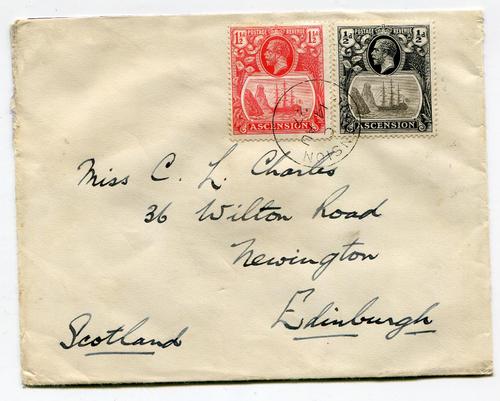 1½d POSTAGE & REVENUE 1½d
ASCENSION
½d POSTAGE & REVENUE ½d
ASCENSION
Miss C. L. Charles
36 Wilton Road
Newington
Edinburgh
Scotland